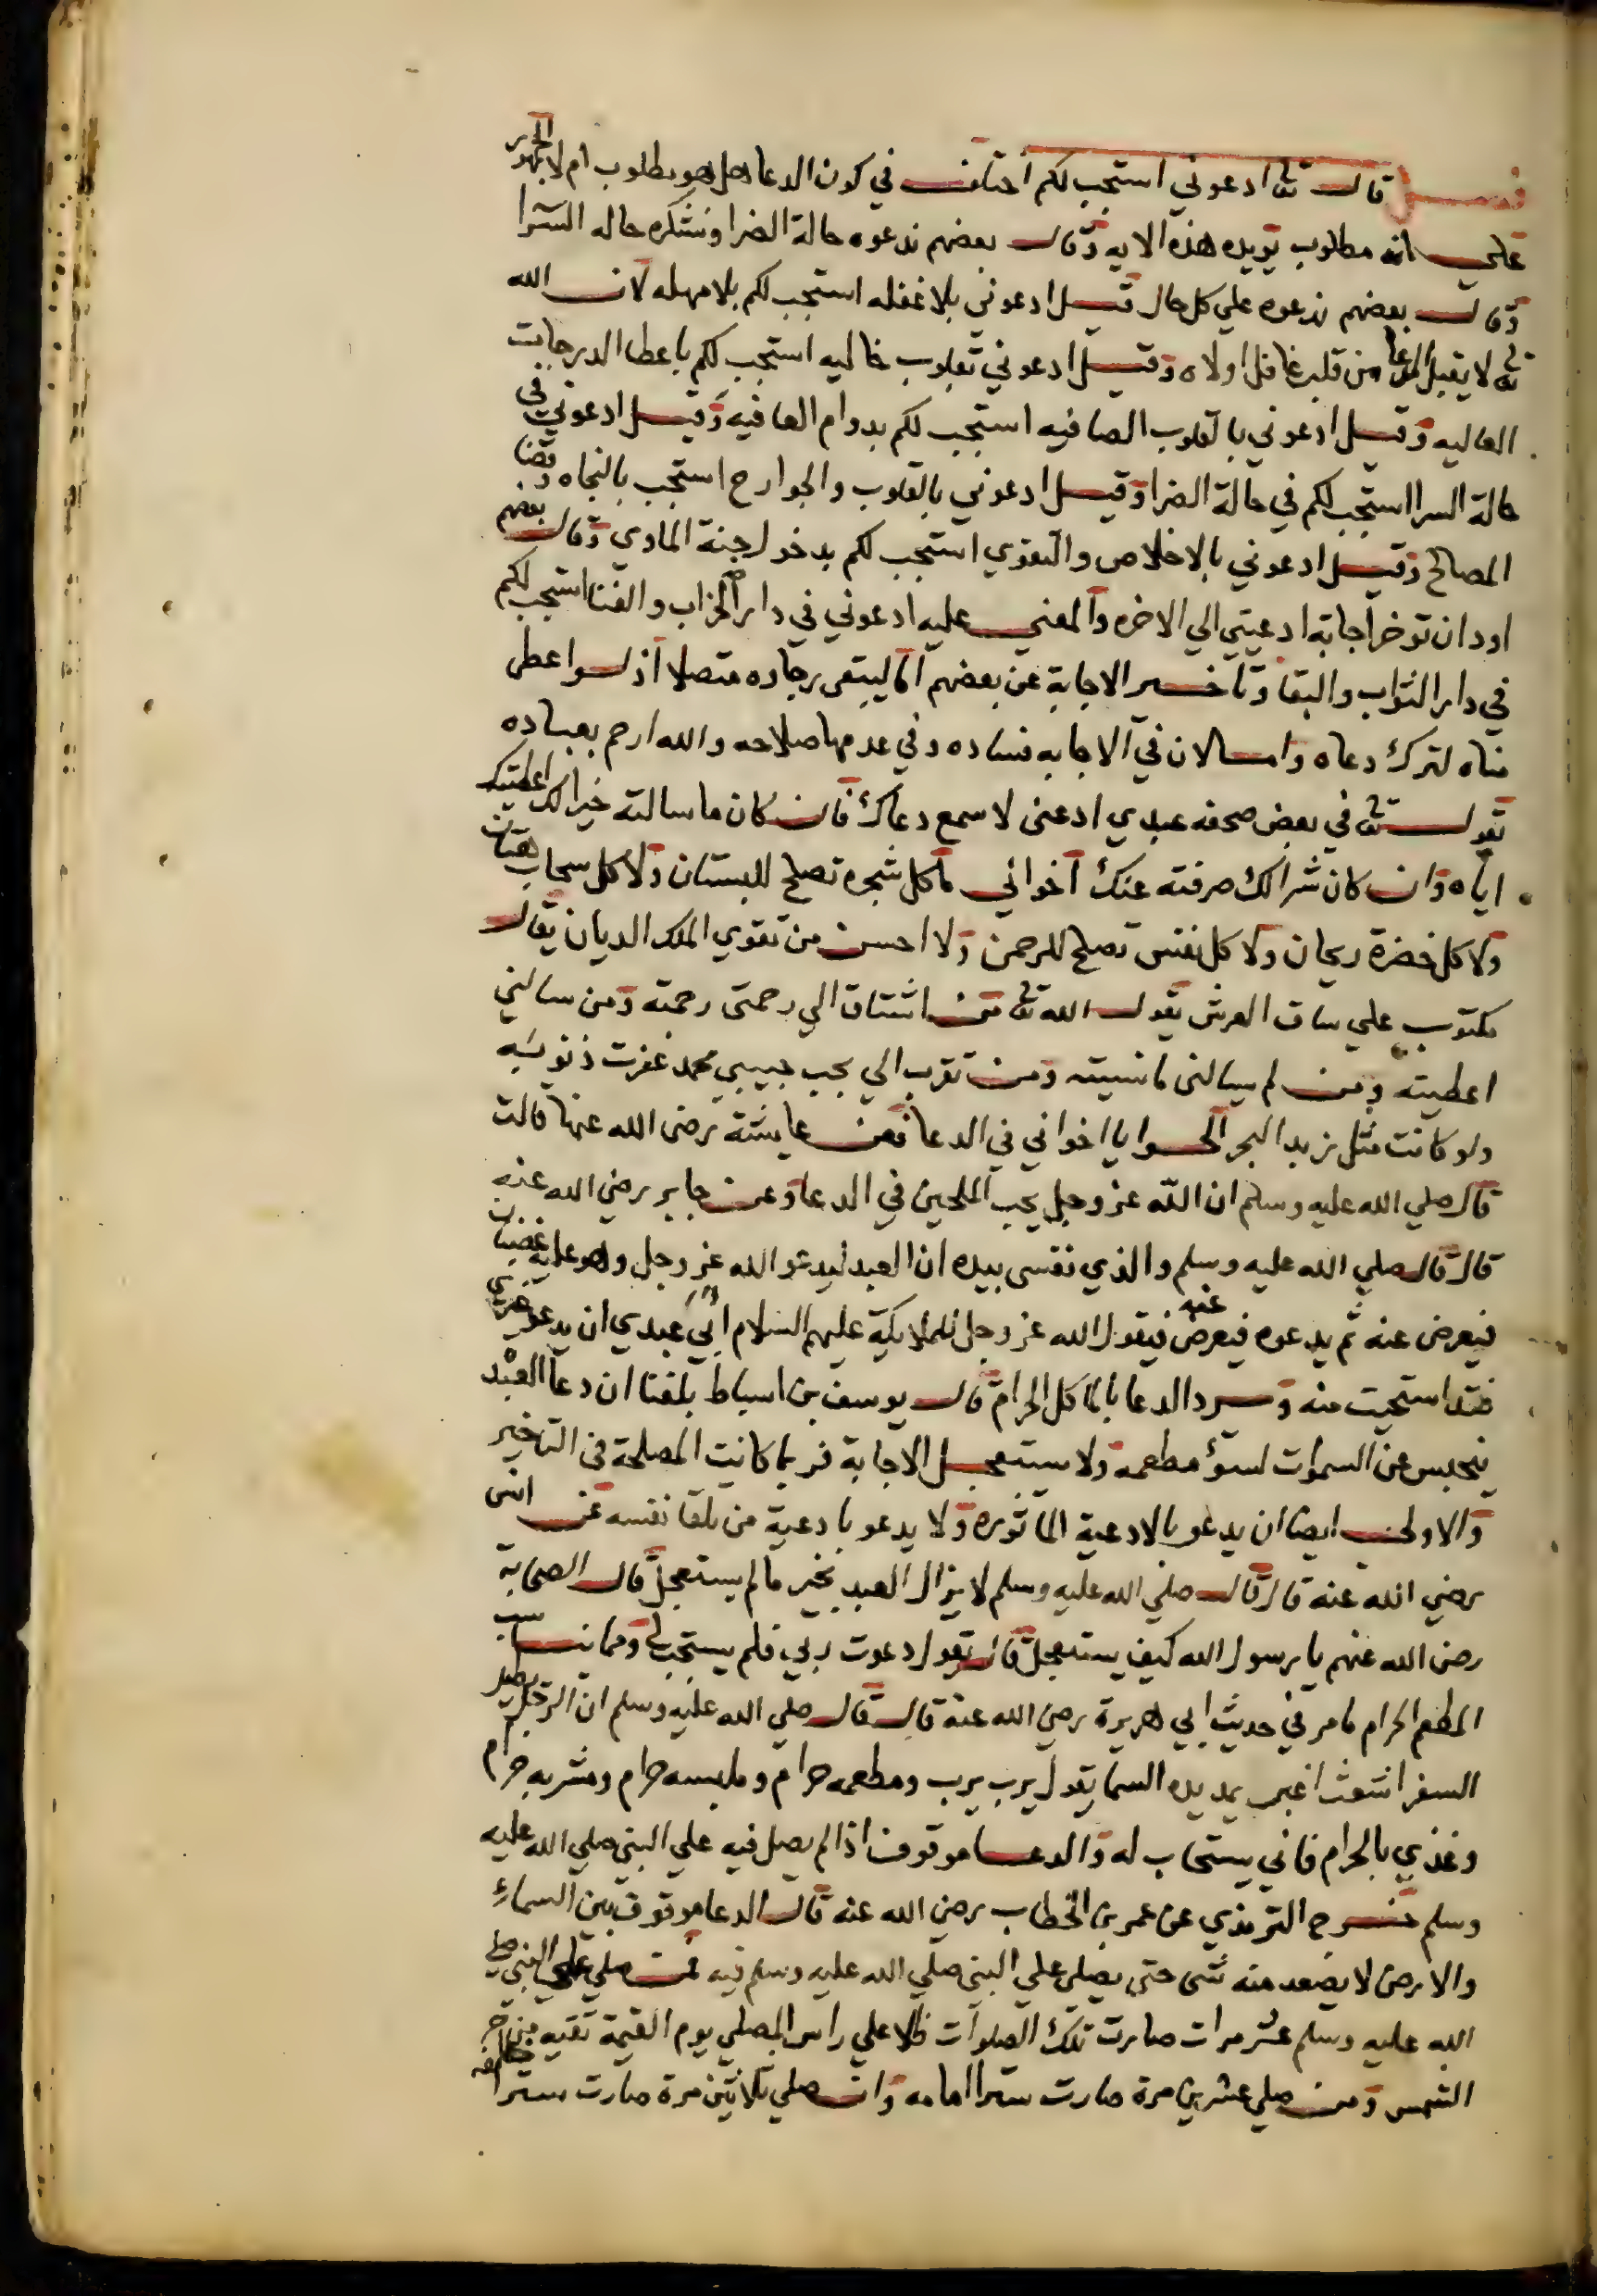 فصل قال تعالى ادعوني استجب لكم اختلف في كون الدعا هل هو مطلوب ام لا الجمهور
على انه مطلوب يويده هذه الايه وقال بعضهم ندعوه حالة الضرا ونشكره حاله السرا
وقال بعضهم ندعوه علي كل حال قيل ادعوني بلا غفله استجب لكم بلا مهله لان الله
تعالى لا يقبل الدعا من قلب غافل اولاه وقيل ادعوني بقلوب خاليه استجب لكم باعطا الدرجات
العاليه وقيل ادعوني بالقلوب الصافيه استجب لكم بدوام العافيه وقيل ادعوني في
حالة السرا استجب لكم في حالة الضرا وقيل ادعوني بالقلوب والجوارح استجب بالنجاه وقضا
المصالح وقيل ادعوني بالاخلاص والتقوي استجب لكم بدخول جنة الماوي وقال بعضهم
اود ان توخر اجابة ادعيتي الي الاخره والمعني عليه ادعوني في دار الخراب والفنا استجب لكم
في دار الثواب والبقا وتاخير الاجابة عن بعضهم اما ليبقى رجاوه متصلا اذ لو اعطى
مناه لترك دعاه واما لان في الاجابه فساده وفي عدمها صلاحه والله ارحم بعباده
يقول تعالى في بعض صحفه عبدي ادعنى لاسمع دعاك فان كان ما سالته خيرا لك اعطيتك
اياه وان كان شرا لك صرفته عنك اخواني ما كل شجره تصلح للبستان ولا كل سحاب هتان
ولا كل خضرة ريحان ولا كل نفس تصلح للرحمن ولا احسن من تقوي الملك الديان يقال
مكتوب علي ساق العرش يقول الله تعالى من اشتاق الي رحمتى رحمته ومن سالني
اعطيته ومن لم يسالنى ما نسيته ومن تقرب الي بحب حبيبي محمد غفرت ذنوبه
ولو كانت مثل زبد البحر الحوا يا اخواني في الدعا فعن عايشة رضى الله عنها قالت
قال صلي الله عليه وسلم ان الله عز وجل يحب الملحين في الدعا وعن جابر رضي الله عنه
قال قال صلي الله عليه وسلم والذي نفسى بيده ان العبد ليدعو الله عز وجل وهو عليه غضبان
فيعرض عنه ثم يدعوه فيعرض عنه فيقول الله عز وجل للملايكة عليهم السلام ابي عبدي ان يدعو غيري
فقد استحيت منه ويرد الدعا بالماكل الحرام قال يوسف بن اسباط بلغنا ان دعا العبد
ينحبس عن السموات لسوء مطعمه ولا يستعجل الاجابة فربما كانت المصلحة في التاخير
والاولى ايضا ان يدعو بالادعية الماثوره ولا يدعو بادعية من تلقا نفسه عن انس
رضي الله عنه قال قال صلي الله عليه وسلم لا يزال العبد بخير ما لم يستعجل قال الصحابة
رضى الله عنهم يا رسول الله كيف يستعجل قال يقول دعوت ربي فلم يستجب لي ومما يناسب
المطعم الحرام ما مر في حديث ابي هريرة رضي الله عنه قال قال صلي الله عليه وسلم ان الرجل يطيل
السفر اشعث اغبر يمد يده السما يقول يرب يرب ومطعمه حرام وملبسه حرام ومشربه حرام
وغذي بالحرام فاني يستجاب له والدعا موقوف اذا لم يصل فيه علي النبي صلي الله عليه
وسلم خرج الترمذي عن عمر بن الخطاب رضي الله عنه قال الدعا موقوف بين السماء
والارض لا يصعد منه شى حتى يصلى علي النبي صلي الله عليه وسلم فيه فمن صلي علي النبي صلي
الله عليه وسلم عشر مرات صارت تلك الصلوات ظلا علي راس المصلي يوم القيمة تقيه من حر
الشمس ومن صلي عشرين مرة صارت سترا امامه وان صلي ثلاثين مرة صارت سترا خلفه